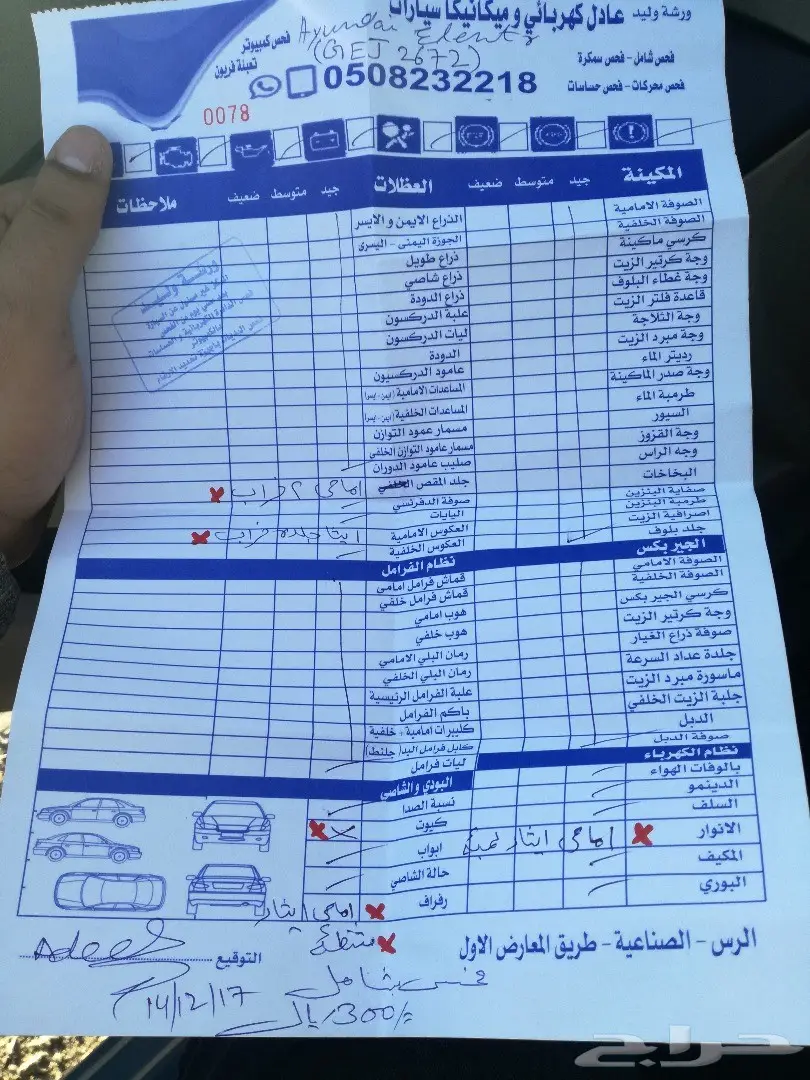 ورشة وليد عادل كهربائي و ميكانيكا سيارات
Hyundai Elentra
(GEJ 2672)
فحص كمبيوتر
تعبئة فريون
فحص شامل - فحص سمكرة
فحص محركات - فحص حساسات
0508232218
0078
المكينة جيد متوسط ضعيف
العظلات جيد متوسط ضعيف ملاحظات
الصوفة الامامية
الصوفة الخلفية
كرسي ماكينة
وجة كرتير الزيت
وجة غطاء البلوف
قاعدة فلتر الزيت
وجة الثلاجة
وجة مبرد الزيت
رديتر الماء
وجة صدر الماكينة
طرمبة الماء
السيور
وجة القزوز
وجه الراس
البخاخات
صفاية البنزين
طرمبة البنزين
اصرافية الزيت
جلد بلوف
الذراع الايمن و الايسر
الجوزة اليمنى - اليسرى
ذراع طويل
ذراع شاصي
ذراع الدودة
علبة الدركسون
ليات الدركسون
الدودة
عامود الدركسيون
المساعدات الامامية (ايمن - يسرا)
المساعدات الخلفية (ايمن - يسرا)
مسمار عمود التوازن
مسمار عامود التوازن الخلفي
صليب عامود الدوران
جلد المقص الخلفي امامي ٢ خراب
صوفة الدفرنسي
اليايات
العكوس الامامية ايتا جلده خراب
العكوس الخلفية
الجير بكس
الصوفة الامامي
الصوفة الخلفية
كرسي الجير بكس
وجة كرتير الزيت
صوفة ذراع الغيار
جلدة عداد السرعة
ماسورة مبرد الزيت
جلبة الزيت الخلفي
الدبل
صوفة الدبل
نظام الفرامل
قماش فرامل امامي
قماش فرامل خلفي
هوب امامي
هوب خلفي
رمان البلي الامامي
رمان البلي الخلفي
علبة الفرامل الرئيسية
باكم الفرامل
كليبرات امامية + خلفية
كابل فرامل اليد ( جلنط )
ليات فرامل
نظام الكهرباء
بالوفات الهواء
الدينمو
السلف
الانوار امامي ايتار
المكيف
البوري
البودي والشاصي
نسبة الصدا
كبوت
ابواب
حالة الشاصي
رفراف امامي ايتار
الرس - الصناعية - طريق المعارض الاول
التوقيع
14/12/17
فحص شامل
300/= ريال
حراج